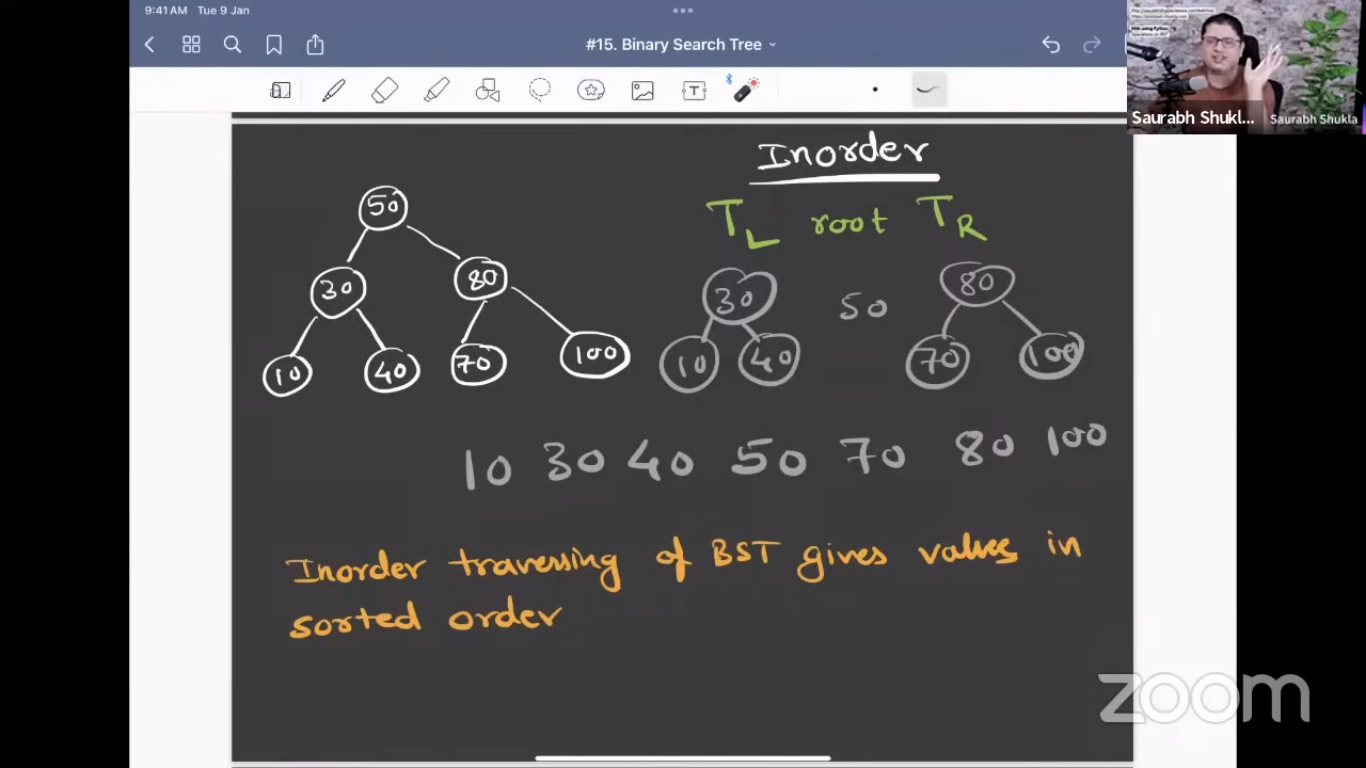 9:41 AM Tue 9 Jan
#15. Binary Search Tree
T
Saurabh Shukl...
Saurabh Shukla
Inorder
TL root TR
50
30
80
10 40 70 100
30 50 80
10 40 70 100
10 30 40 50 70 80 100
Inorder traversing of BST gives values in
sorted order
zoom